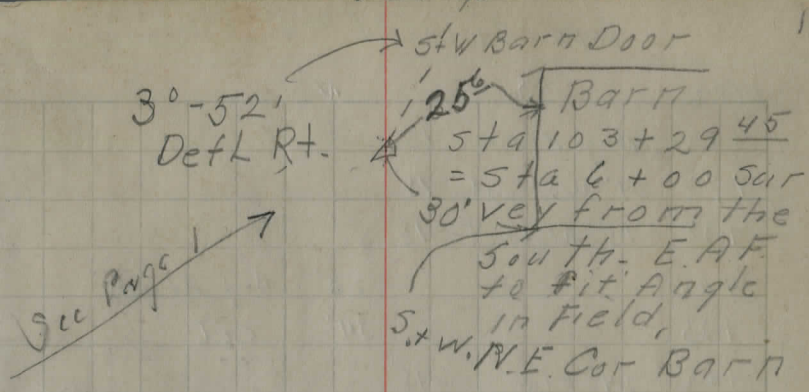 1
S+W Barn Door
3° - 52'
Defl Rt.
25⁶
Barn
Sta 103 + 29 45
= Sta 6 + 00 Sur
30' vey from the
South. E.A.F.
to fit Angle
in Field,
S.+W. N.E. Cor Barn
See Page 1